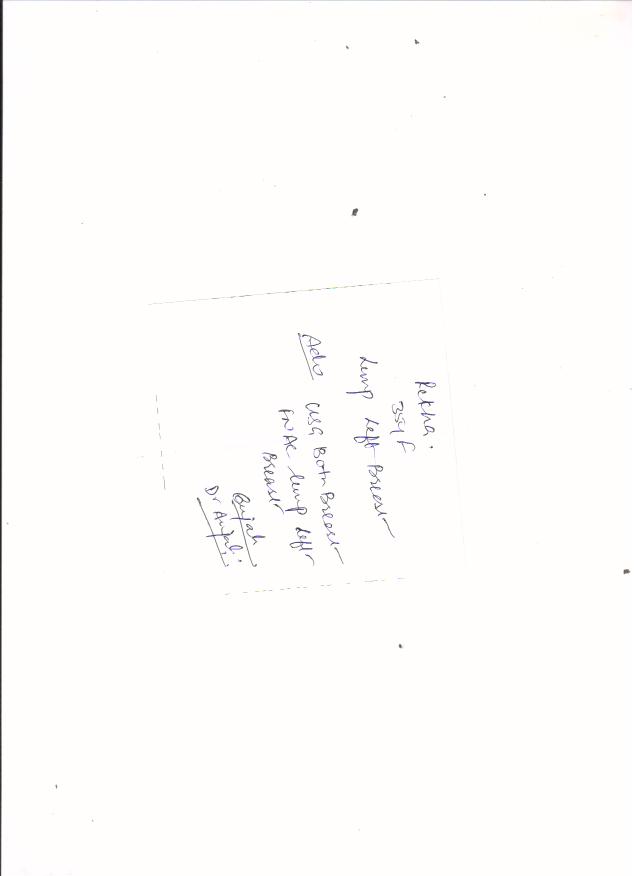 Rekha.
35y F
Lump Left Breast
Adv USG Both Breast
FNAC lump left
Breast
Anjali
Dr Anjali